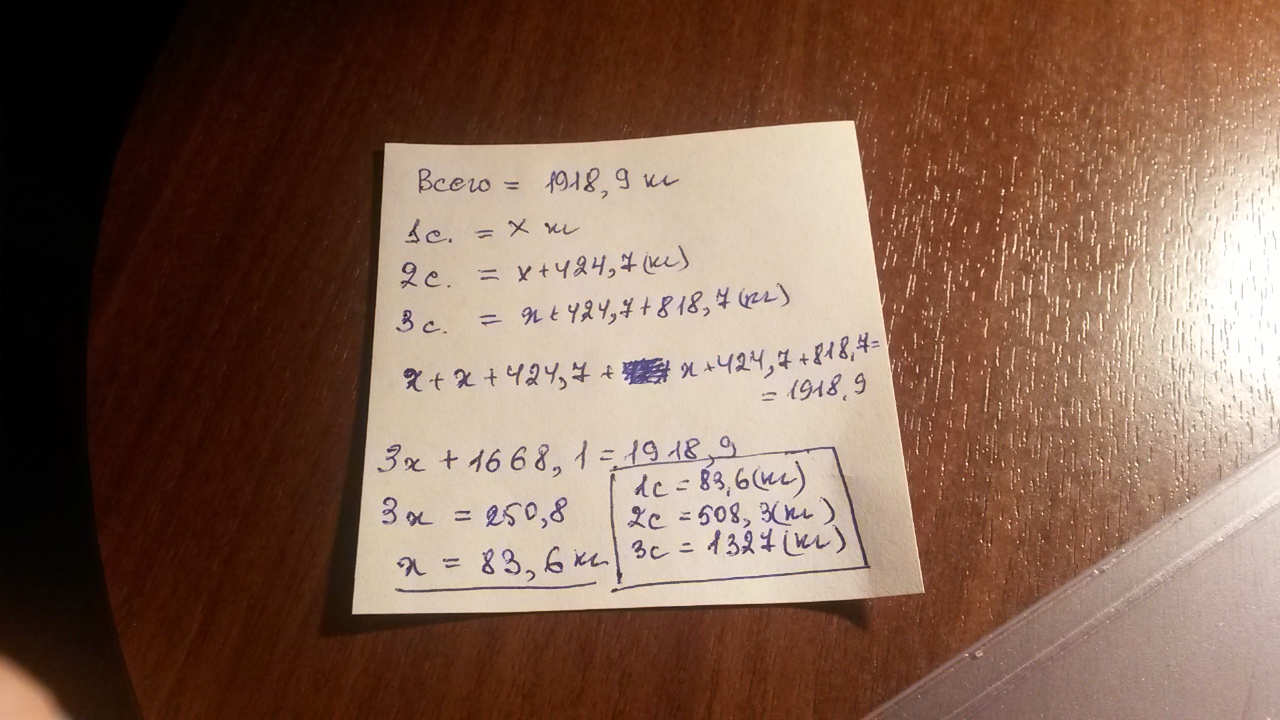 Всего = 1918,9 кг
1с. = x кг
2с. = x+424,7(кг)
3с. = x+424,7+818,7(кг)
x+x+424,7+ x+424,7+818,7=
= 1918,9
3x+1668,1=1918,9
3x = 250,8
x = 83,6 кг
1с = 83,6(кг)
2с = 508,3(кг)
3с = 1327(кг)